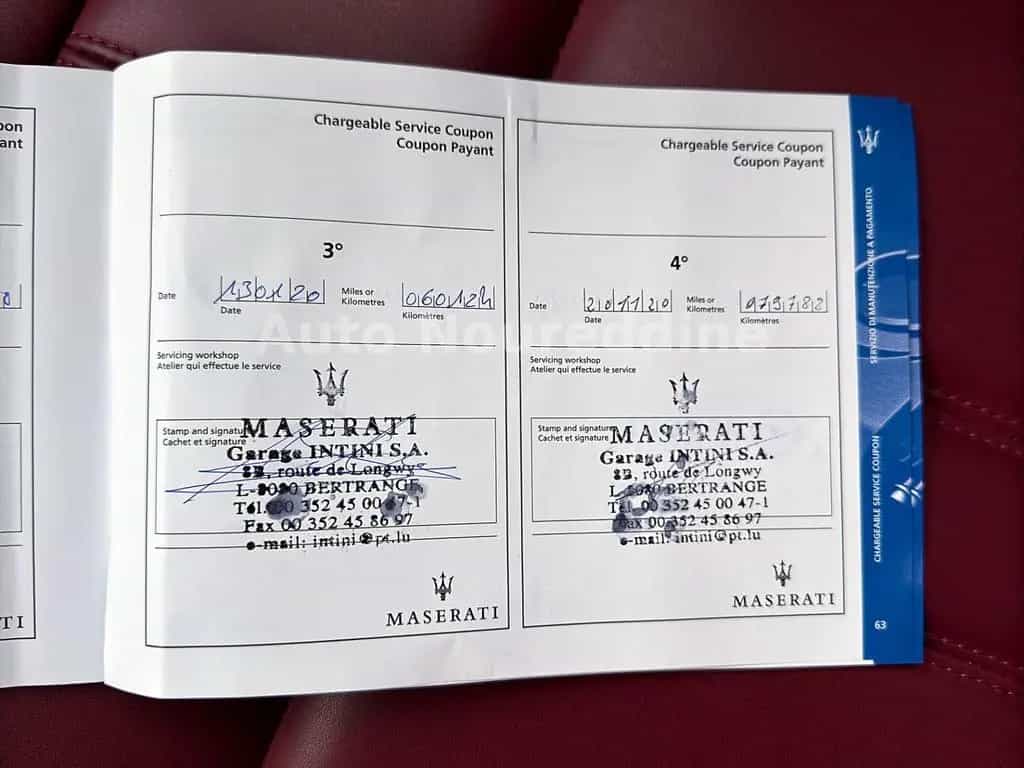 pon
ant
TI
Chargeable Service Coupon
Coupon Payant
3°
Date 130120 Miles or
Kilometres
Date
Kilomètres
Servicing workshop
Atelier qui effectue le service
Stamp and signature
Cachet et signature
MASERATI
Garage INTINI S.A.
82, route de Longwy
L-8080 BERTRANGE
Tél. 00 352 45 00 47-1
Fax 00 352 45 86 97
e-mail: intini@pt.lu
MASERATI
Chargeable Service Coupon
Coupon Payant
4°
Date 201120 Miles or
Kilometres
Date
Kilomètres
Servicing workshop
Atelier qui effectue le service
Stamp and signature
Cachet et signature
MASERATI
Garage INTINI S.A.
82, route de Longwy
L-8080 BERTRANGE
Tél. 00 352 45 00 47-1
Fax 00 352 45 86 97
e-mail: intini@pt.lu
MASERATI
SERVIZIO DI MANUTENZIONE A PAGAMENTO
CHARGEABLE SERVICE COUPON
63
Auto Noureddine